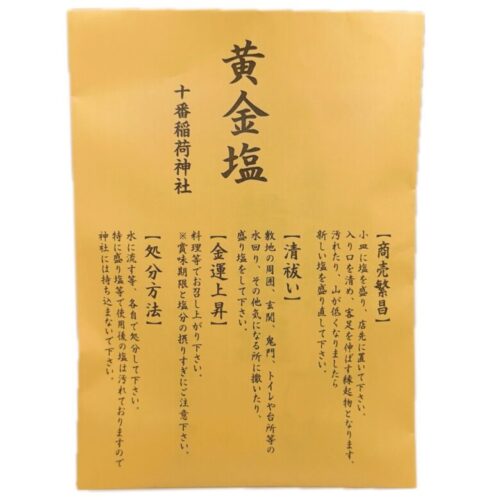 黄金塩
十番稲荷神社
【商売繁昌】
小皿に塩を盛り、店先に置いて下さい。
入り口を清め、客足を伸ばす縁起物となります。
汚れたり、山が低くなりましたら
新しい塩を盛り直して下さい。
【清祓い】
敷地の周囲、玄関、鬼門、トイレや台所等の
水回り、その他気になる所に撒いたり、
盛り塩をして下さい。
【金運上昇】
料理等でお召し上がり下さい。
※賞味期限と塩分の摂りすぎにご注意下さい。
【処分方法】
水に流す等、各自で処分して下さい。
特に盛り塩等で使用後の塩は汚れておりますので
神社には持ち込まないで下さい。